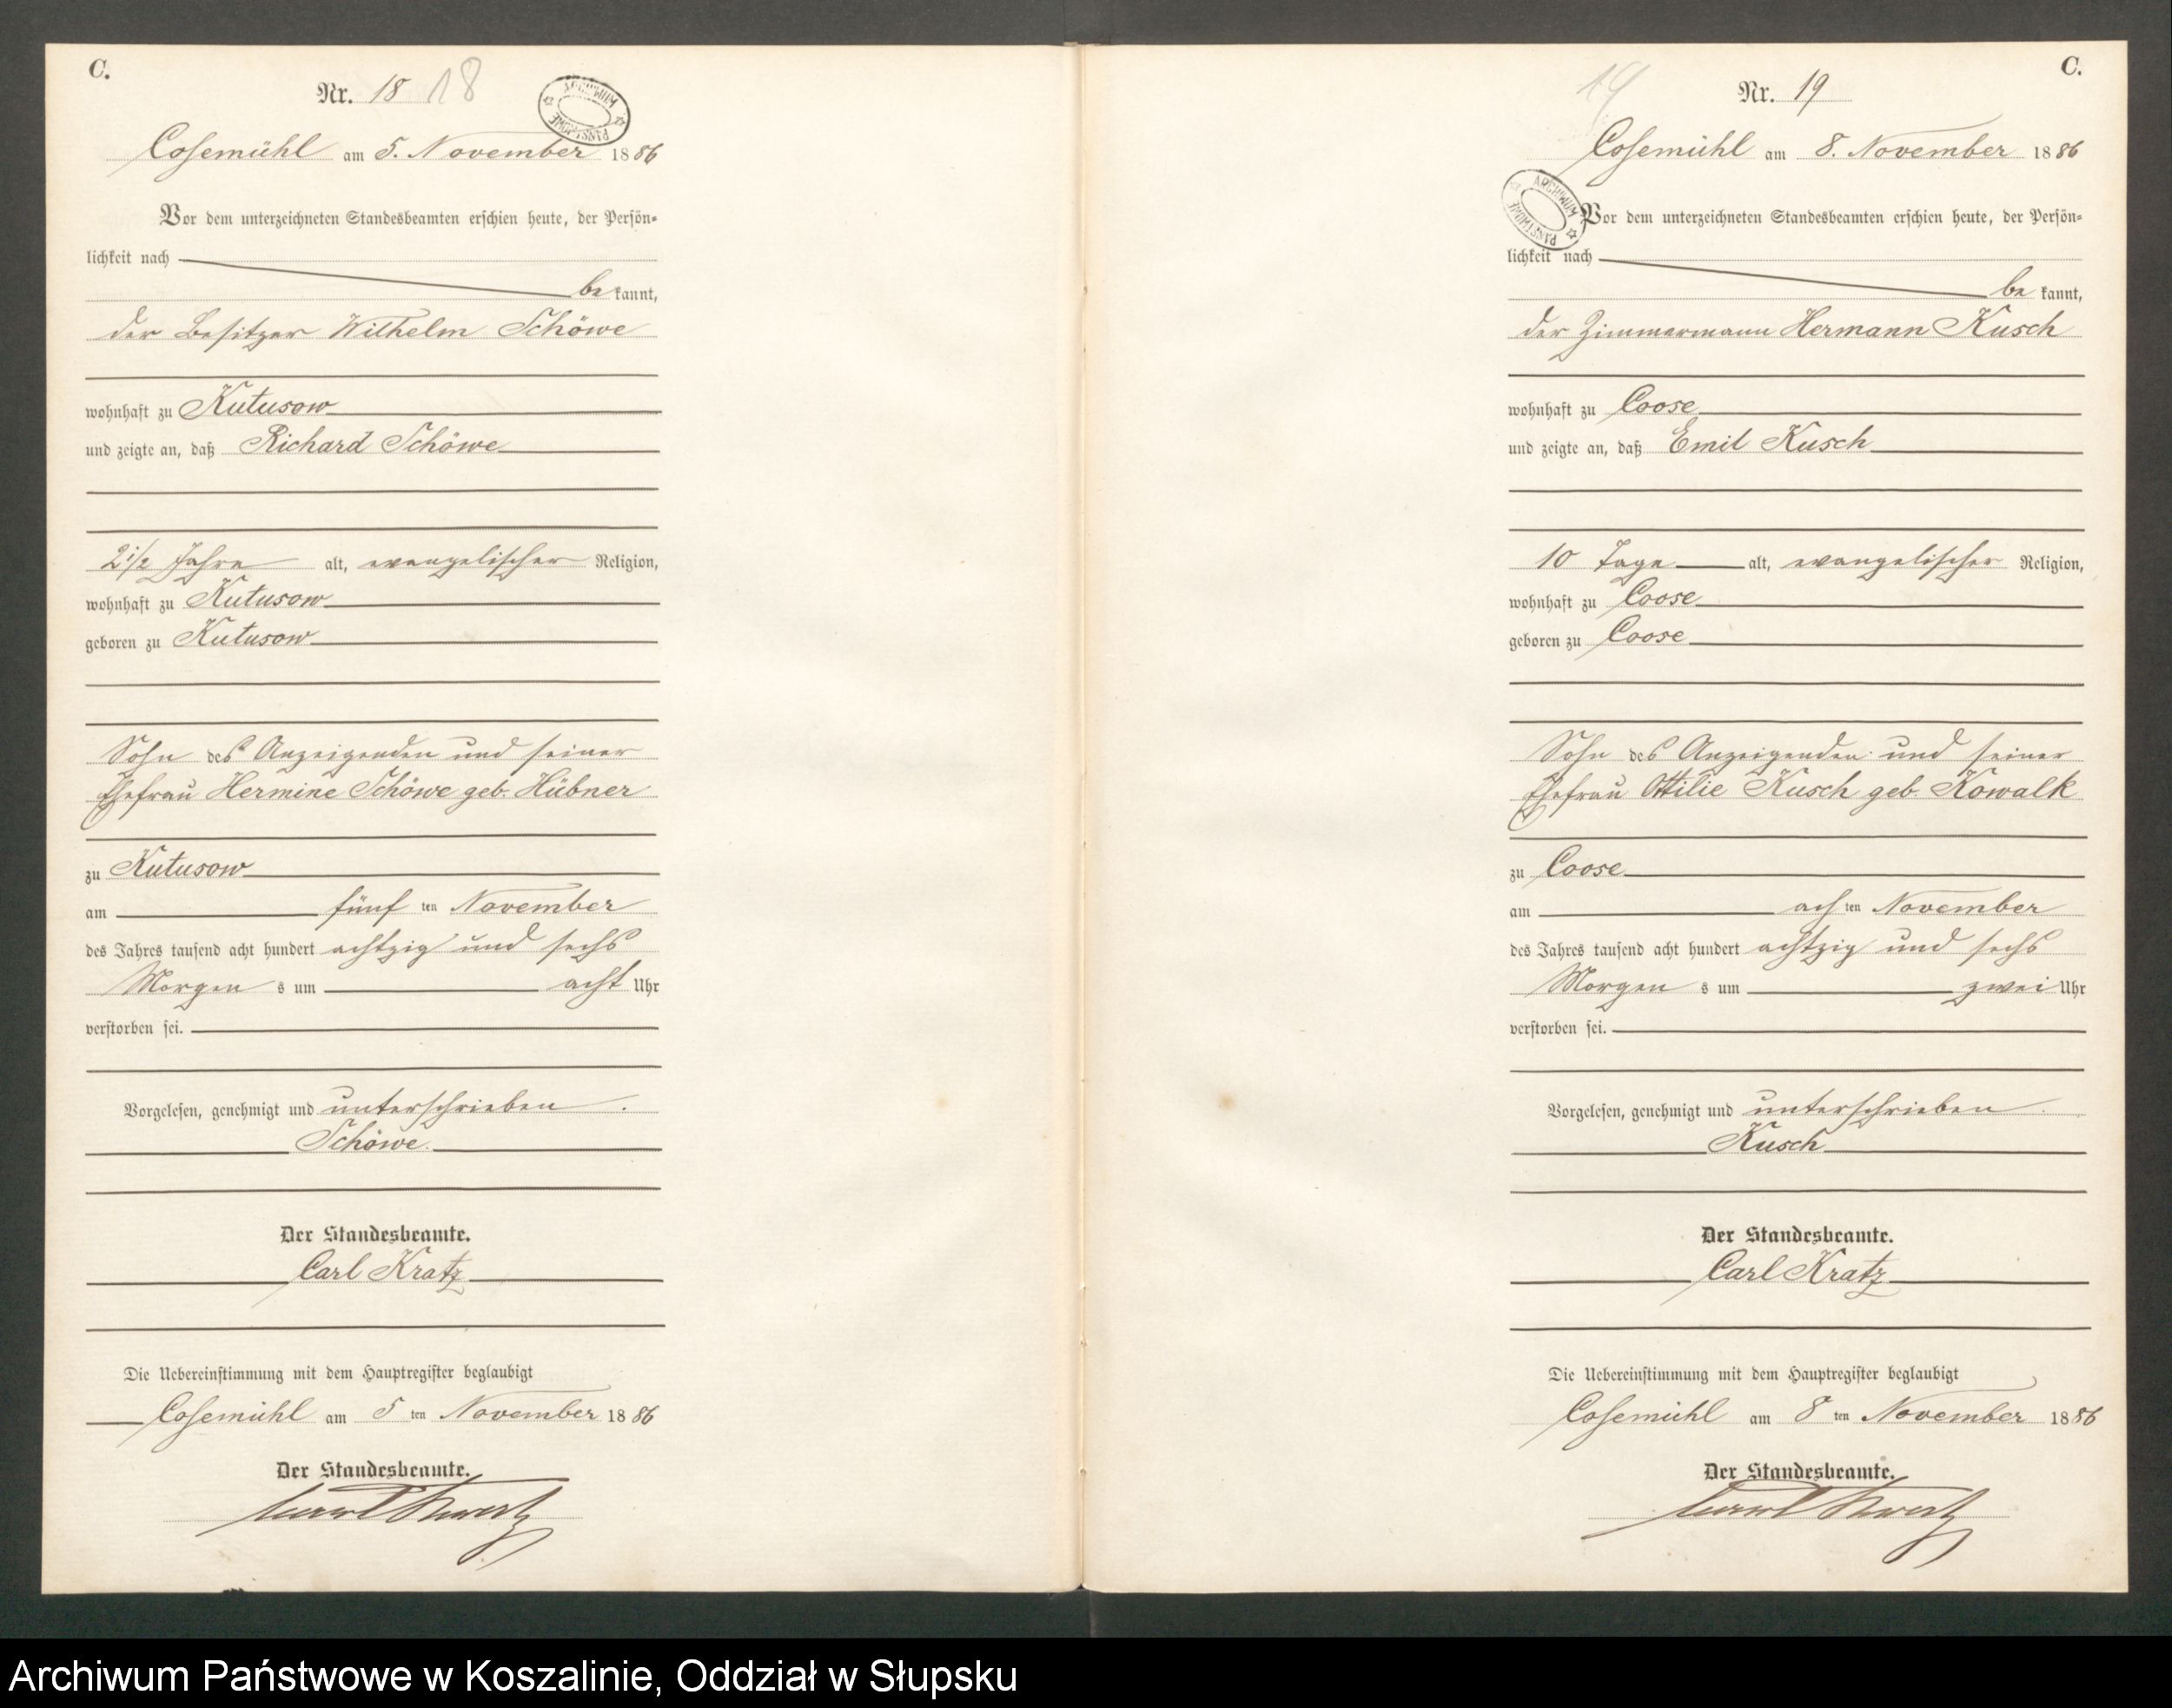 C.
Nr. 18 18
ARCHIWUM PAŃSTWOWE
Cosemühl am 5. November 1886
Vor dem unterzeichneten Standesbeamten erschien heute, der Persön-
lichkeit nach
bekannt,
der Besitzer Wilhelm Schöwe
wohnhaft zu Kutusow
und zeigte an, daß Richard Schöwe
2 1/2 Jahre alt, evangelischer Religion,
wohnhaft zu Kutusow
geboren zu Kutusow
Sohn des Anzeigenden und seiner
Ehefrau Hermine Schöwe geb. Hübner
zu Kutusow
am fünften November
des Jahres tausend acht hundert achtzig und sechs
Morgens um acht Uhr
verstorben sei.
Vorgelesen, genehmigt und unterschrieben.
Schöwe.
Der Standesbeamte.
Carl Kratz
Die Uebereinstimmung mit dem Hauptregister beglaubigt
Cosemühl am 5ten November 1886
Der Standesbeamte.
C.
19 Nr. 19
Cosemühl am 8. November 1886
ARCHIWUM PAŃSTWOWE
Vor dem unterzeichneten Standesbeamten erschien heute, der Persön-
lichkeit nach
bekannt,
der Zimmermann Hermann Kusch
wohnhaft zu Coose
und zeigte an, daß Emil Kusch
10 Tage alt, evangelischer Religion,
wohnhaft zu Coose
geboren zu Coose
Sohn des Anzeigenden und seiner
Ehefrau Ottilie Kusch geb. Kowalk
zu Coose
am achten November
des Jahres tausend acht hundert achtzig und sechs
Morgens um zwei Uhr
verstorben sei.
Vorgelesen, genehmigt und unterschrieben.
Kusch
Der Standesbeamte.
Carl Kratz
Die Uebereinstimmung mit dem Hauptregister beglaubigt
Cosemühl am 8ten November 1886
Der Standesbeamte.
Archiwum Państwowe w Koszalinie, Oddział w Słupsku